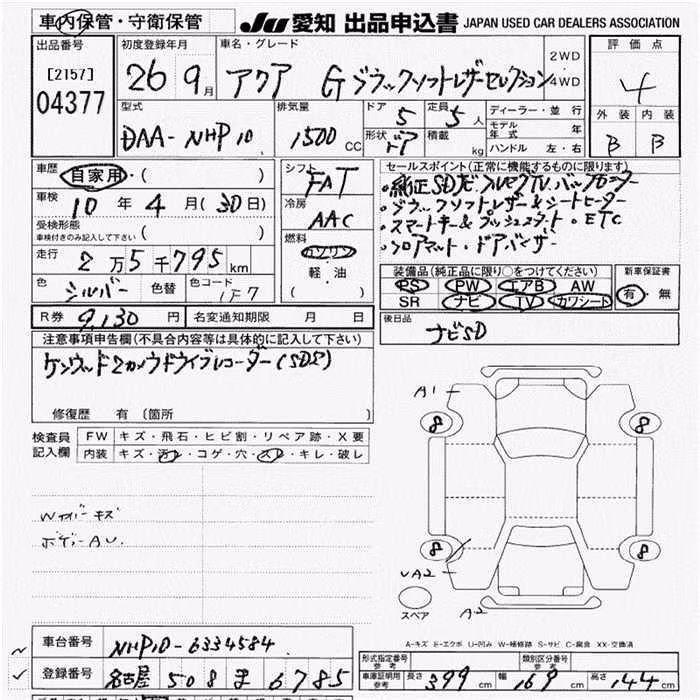 車内保管・守衛保管
JU 愛知 出品申込書 JAPAN USED CAR DEALERS ASSOCIATION
出品番号
[2157]
04377
初度登録年月
26 9月
車名・グレード
アクア Gブラックソフトレザーセレクション
2WD
4WD
評価点
4
外装 内装
B B
型式
DAA-NHP10
排気量
1500 CC
ドア 5
形状 5ドア
定員 5人
積載 kg
ディーラー・並行
モデル年式 年
ハンドル 左・右
車歴 自家用・( )
車検 10年 4月(30日)
受検形態
車検付きのみ記入して下さい ( )
走行 2万5千795km
色 シルバー 色替 色コード 1F7
シフト FAT
冷房 AAC
燃料
ガソリン
軽・油
( )
セールスポイント(正常に機能するものに限ります)
・純正SDナビ フルセグTV バックモニター
・ブラックソフトレザー&シートヒーター
・スマートキー&プッシュスタート・ETC
・フロアマット・ドアバイザー
装備品(純正品に限り○をつけてください)
PS PW エアB AW
SR ナビ TV カワシート
新車保証書
有・無
R券 9,130円 名変通知期限 月 日
後日品
ナビSD
注意事項申告欄(不具合内容等は具体的に記入して下さい)
ケンウッド2カメラドライブレコーダー(SDナシ)
修復歴 有〔箇所 〕
検査員記入欄
FW キズ・飛石・ヒビ割・リペア跡・X要
内装 キズ・汚レ・コゲ・穴・スレ・キレ・破レ
Wカバーキズ
ボディーAU.
A1
8 8
8 8
UA2
A2
スペア
A-キズ E-エクボ U-凹み W-補修跡 S-サビ C-腐食 XX-交換済
車台番号 NHP10-6334584
登録番号 名古屋 508 ま 6785
形式指定番号 参考
類別区分番号 参考
車庫証明用 参考 長さ 399cm 幅 169cm 高さ 144cm